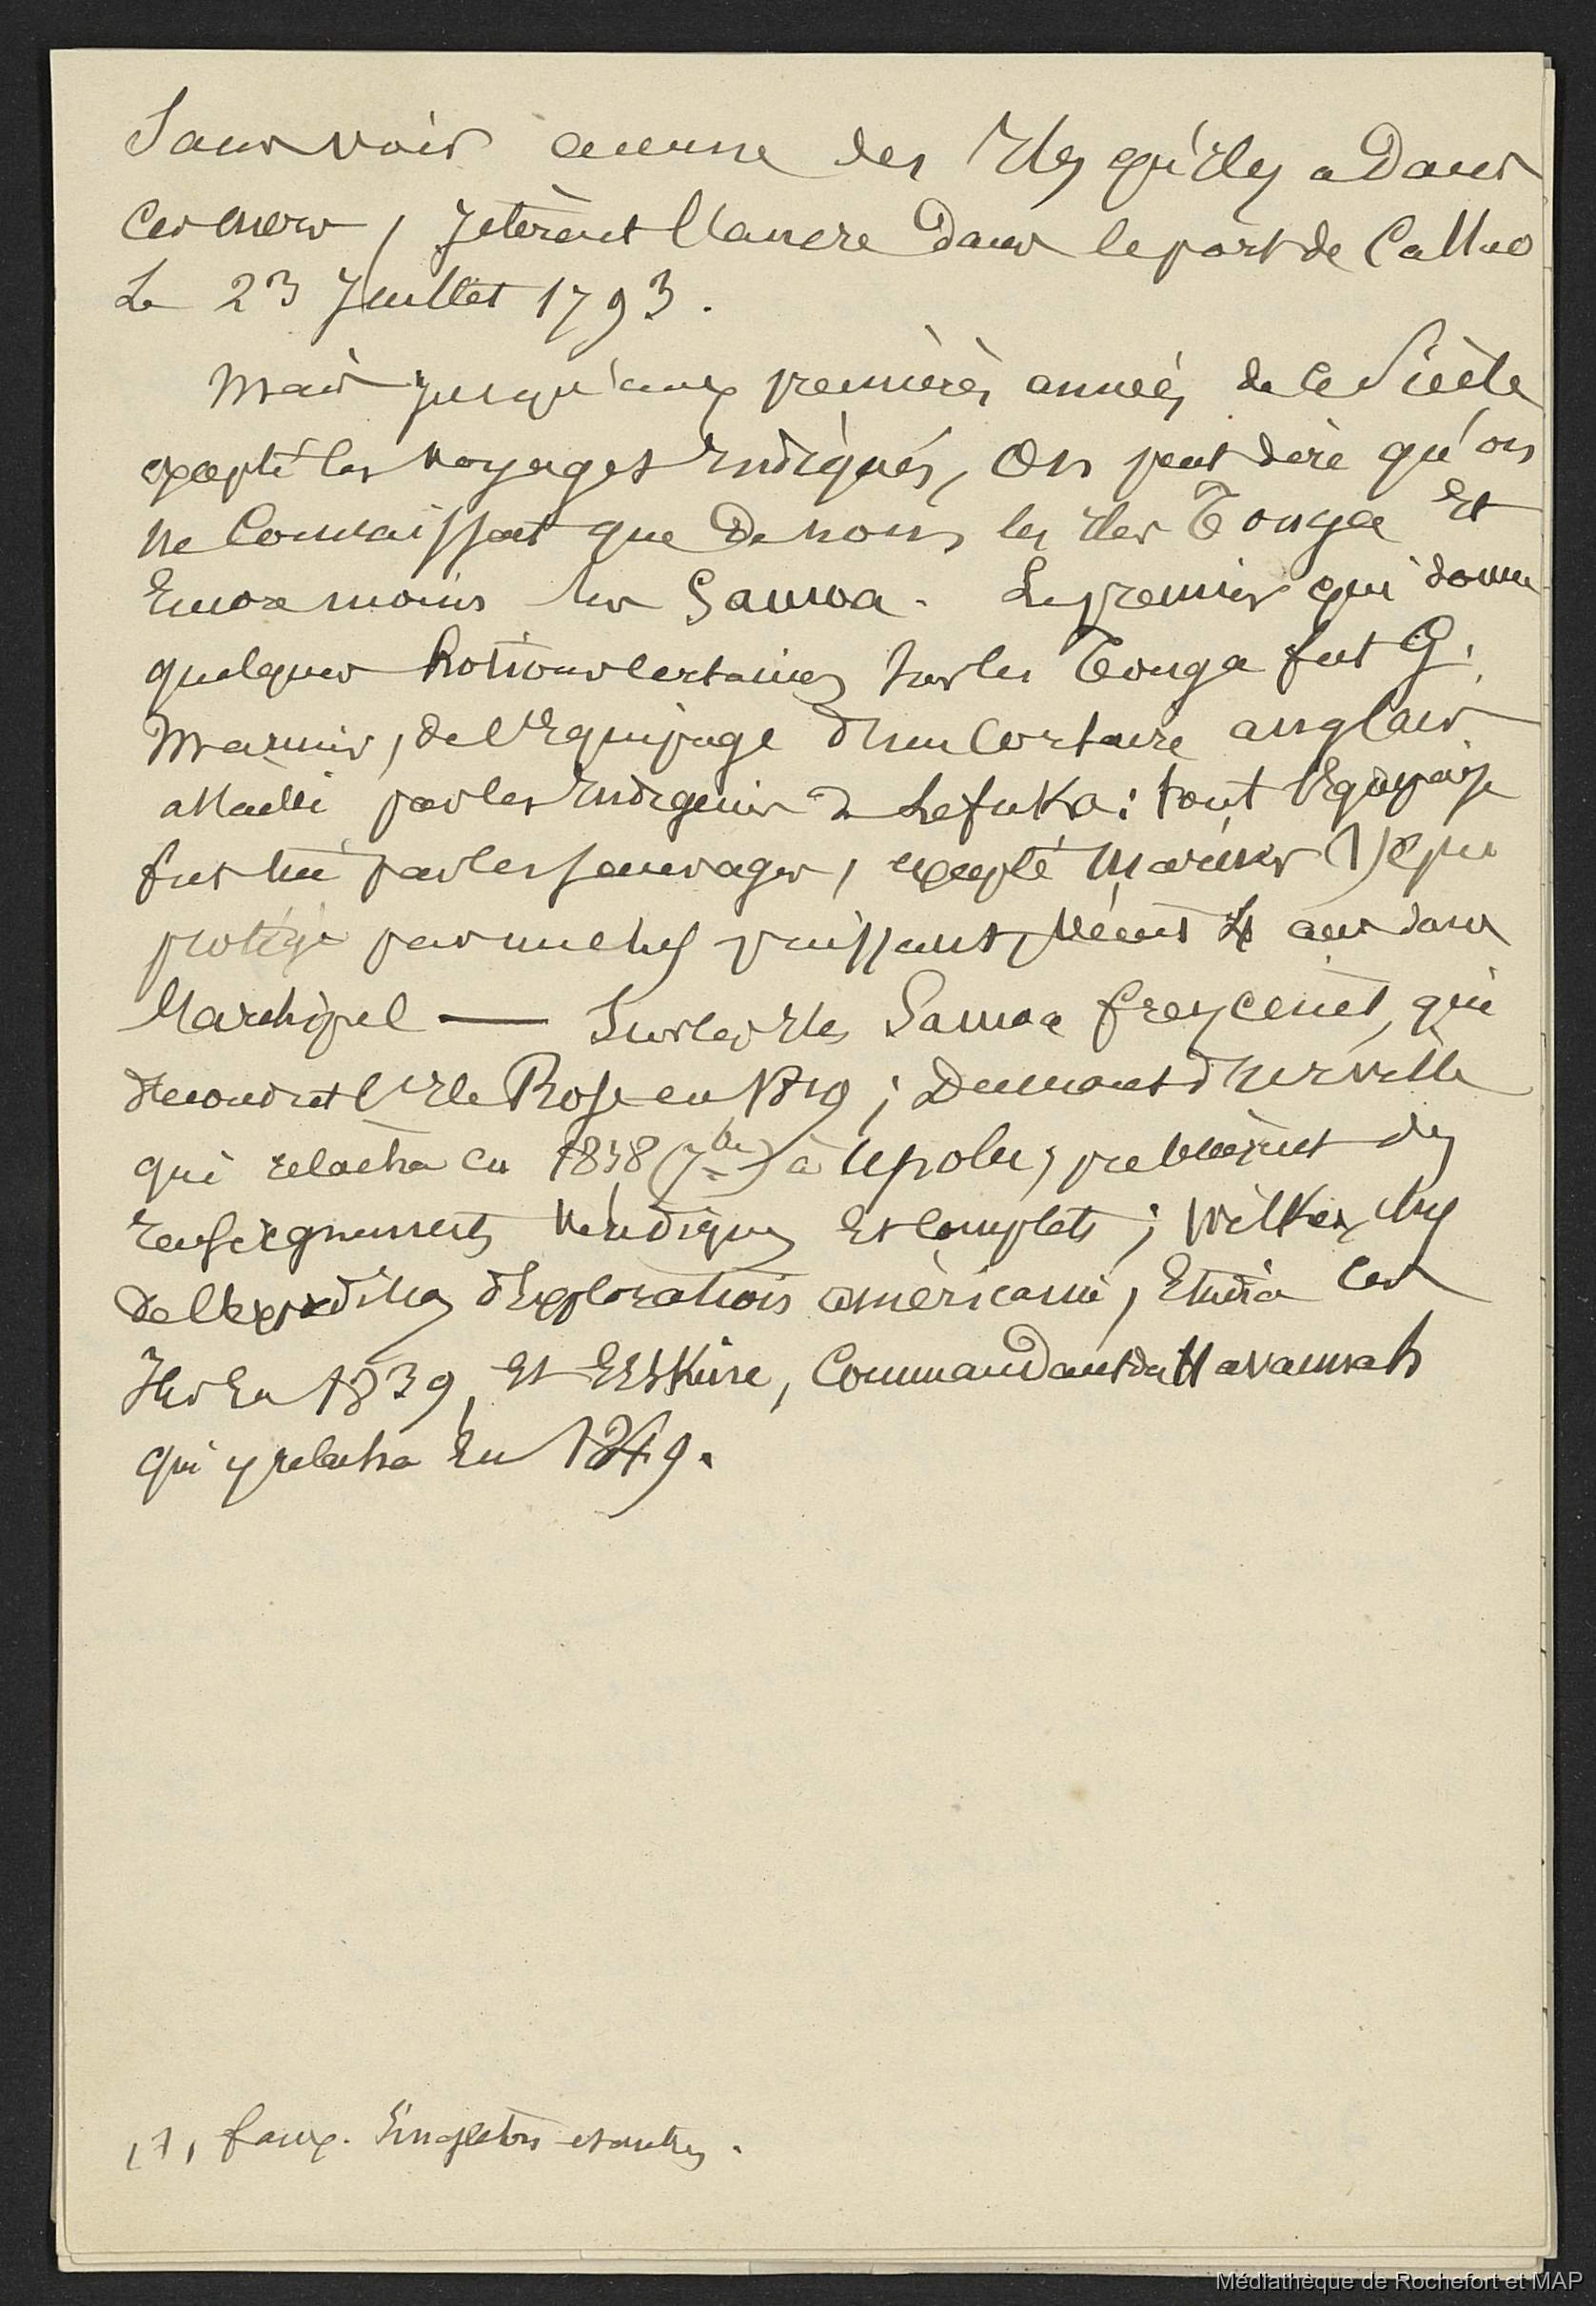 Sans voir aucune des Iles qu'il y a Dans
Ces mers, Jetèrent l'ancre Dans le port de Callao
Le 23 Juillet 1793.
Mais jusqu'aux premières années de ce Siècle
excepté les voyages Indiqués, On peut dire qu'on
ne Connaissait que De nom les Iles Tonga Et
Encore moins les Samoa. Le premier qui donna
quelques Notions certaines sur les Tonga fut G.
Mariner, de l'Equipage d'un Corsaire anglais
attaqué par les Indigènes de Lefuka : tout l'Equipage
fut tué par les sauvages, excepté Mariner (1) qui
protégé par un chef puissant, Vécut 4 ans dans
l'archipel — Sur les Iles Samoa Freycenet, qui
découvrit l'Ile Rose en 1819 ; Dumont d'Urville
qui relacha en 1838 (7bre) à Upolu, publièrent des
renseignements Véridiques Et Complets ; Wilkes, chef
de l'expédition d'Exploration américaine, Etudia Ces
Iles En 1839, Et Erskine, Commandant du Havannah
qui y relacha En 1849.
(1) faux. Singleton et autres.
Médiathèque de Rochefort et MAP